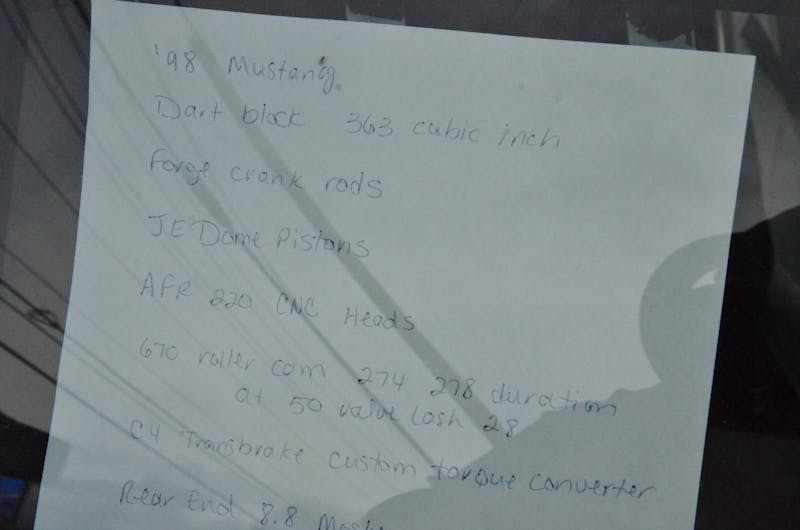 '98 Mustang
Dart block 363 cubic inch
Forge crank rods
JE Dome Pistons
AFR 220 CNC Heads
670 roller cam 274 278 duration
at 50 valve losh 28
C4 Transbrake custom torque converter
Rear End 8.8